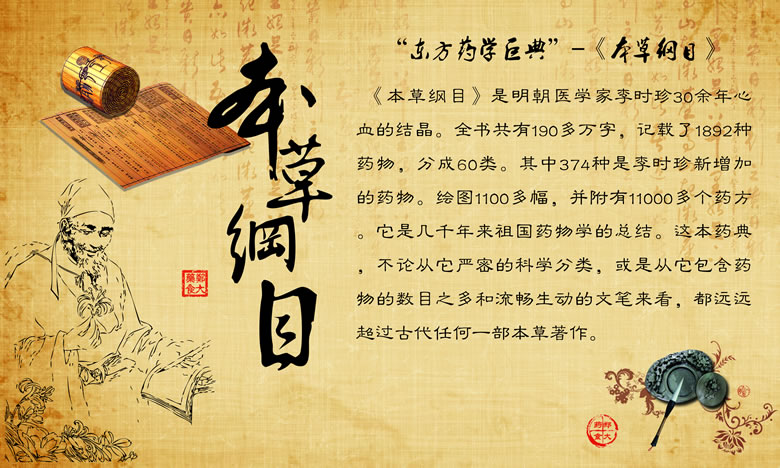 本草纲目
“东方药学巨典”-《本草纲目》
《本草纲目》是明朝医学家李时珍30余年心
血的结晶。全书共有190多万字，记载了1892种
药物，分成60类。其中374种是李时珍新增加
的药物。绘图1100多幅，并附有11000多个药方
。它是几千年来祖国药物学的总结。这本药典
，不论从它严密的科学分类，或是从它包含药
物的数目之多和流畅生动的文笔来看，都远远
超过古代任何一部本草著作。